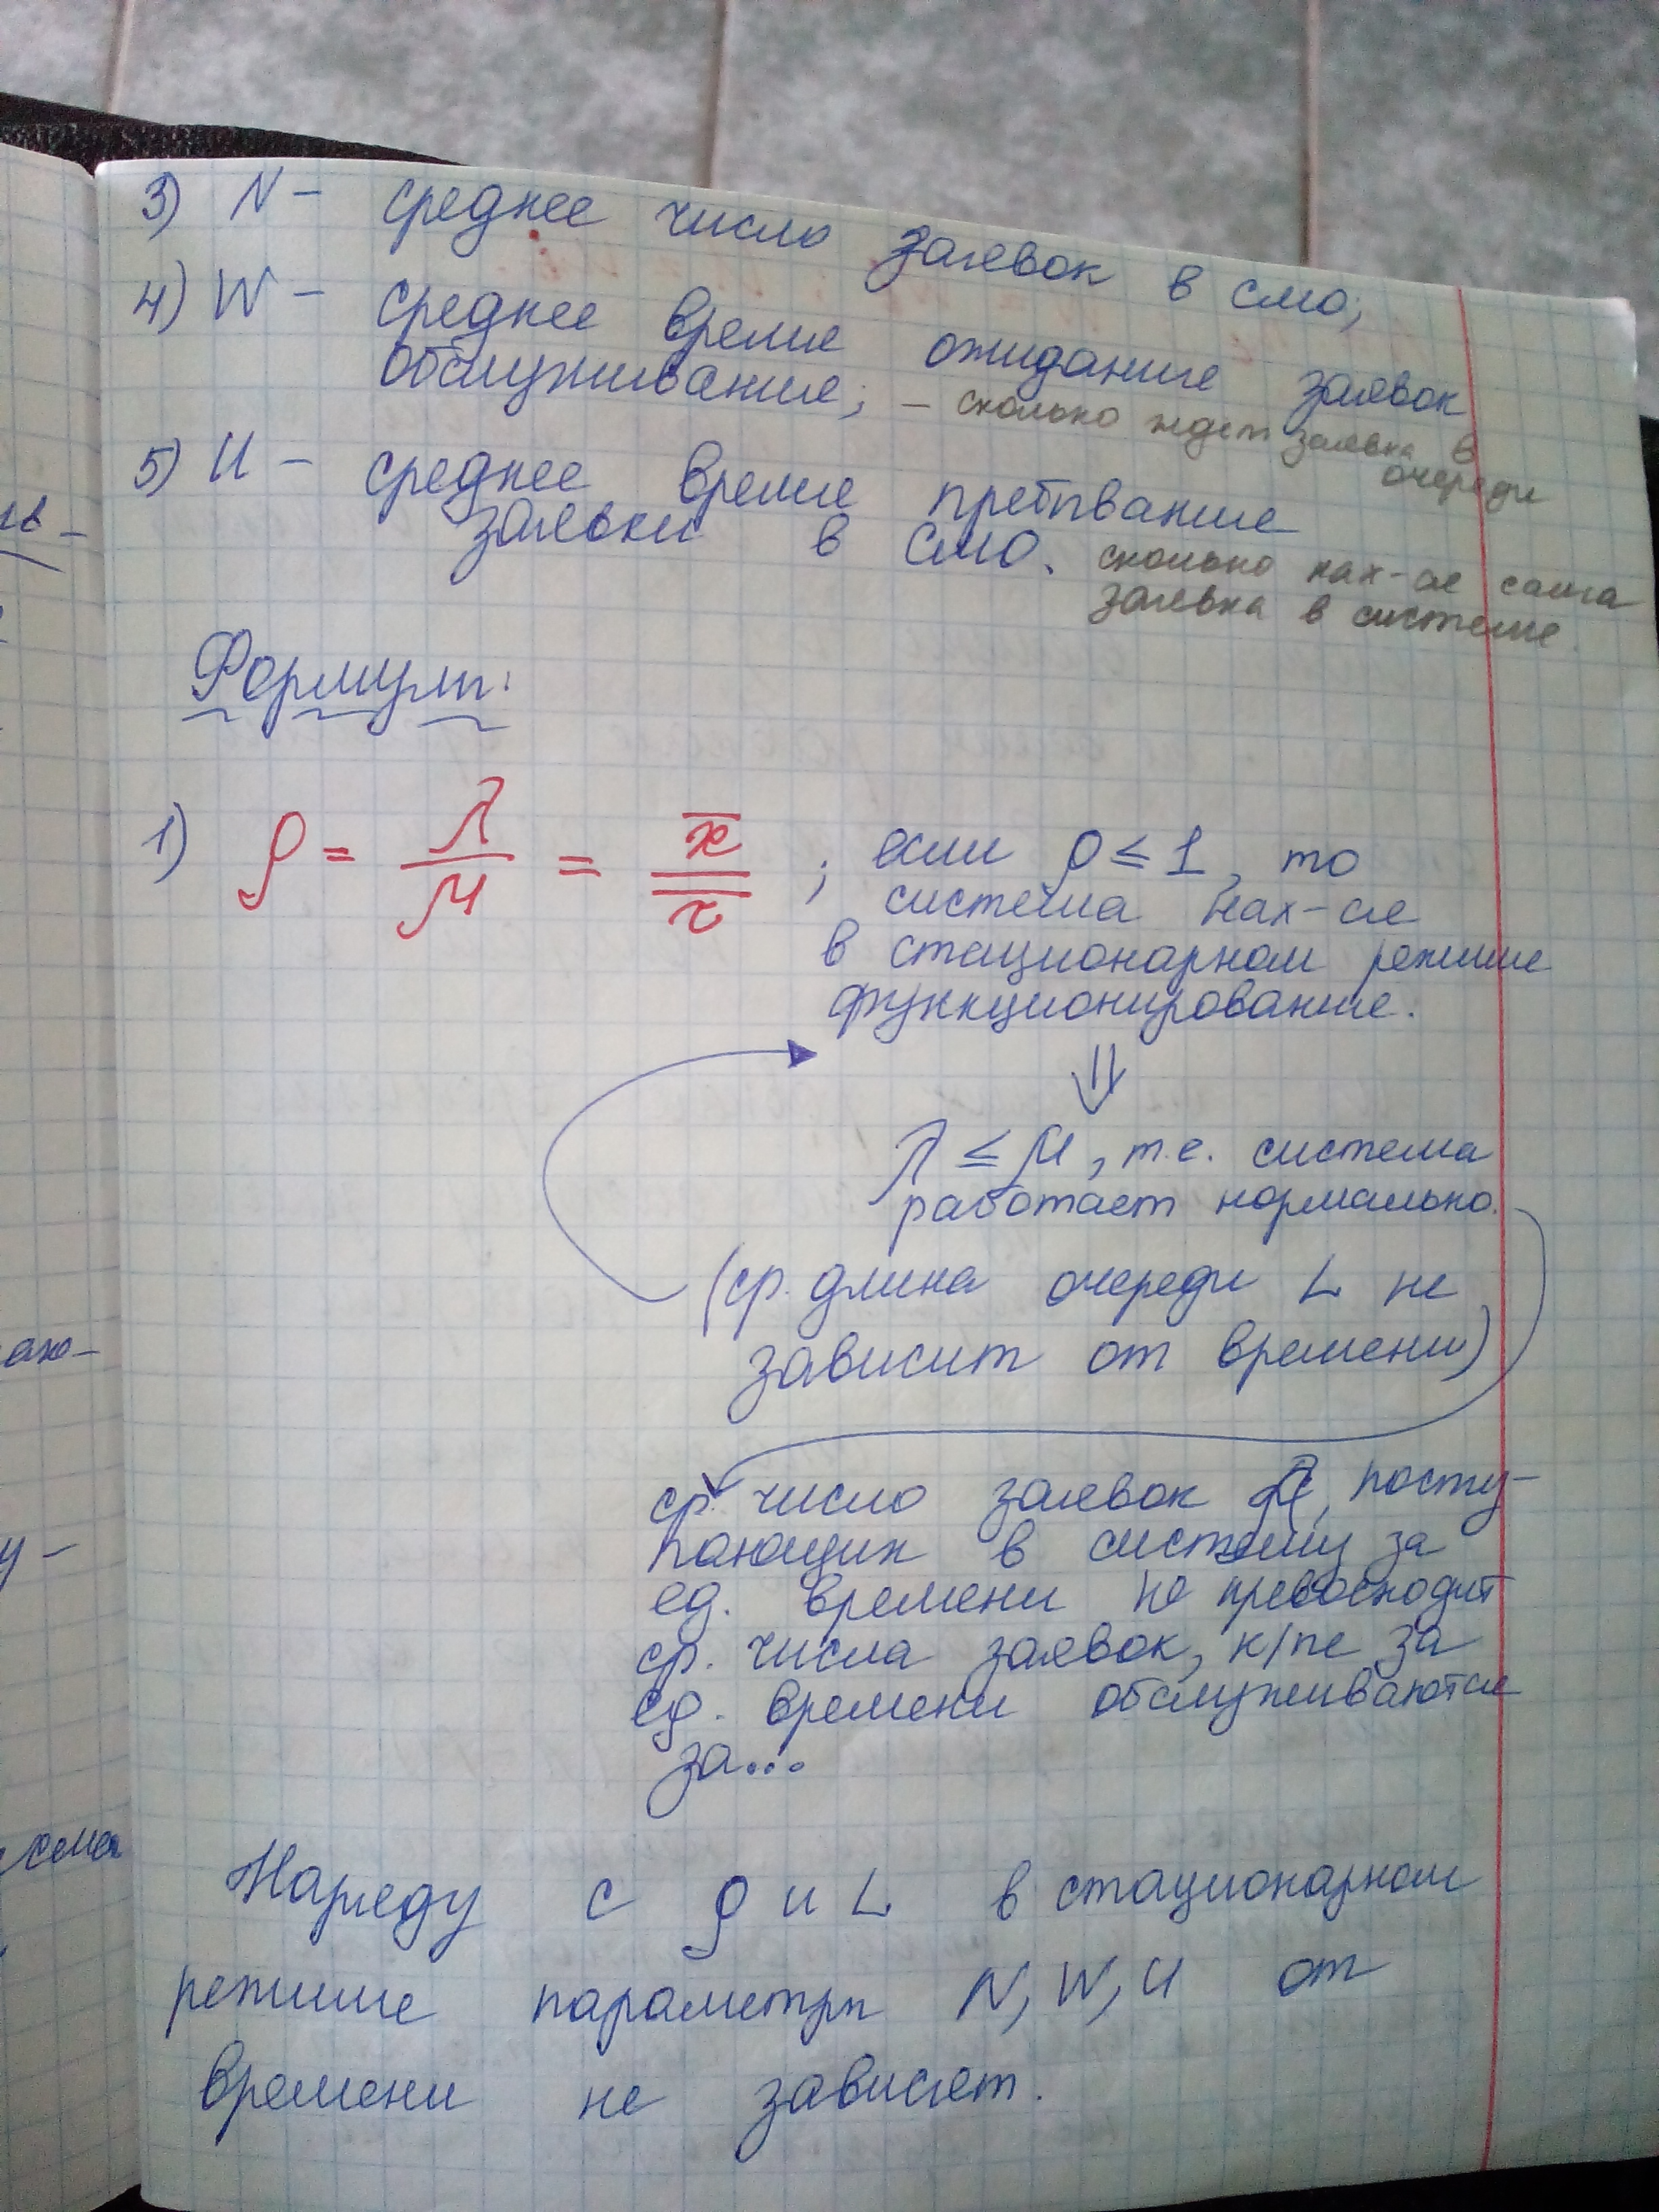 3) N – среднее число заявок в смо;
4) W – среднее время ожидания заявок
обслуживания; – сколько ждет заявка в
очереди
5) U – среднее время пребывания
заявки в СМО. сколько нах-ся сама
заявка в системе
Формулы:
1) ρ = λ/μ = x̄/τ̄ ; если ρ ≤ 1, то
система нах-ся
в стационарном режиме
функционирования.
⇓
λ ≤ μ, т.е. система
работает нормально.
(ср. длина очереди L не
зависит от времени)
ср. число заявок λ, посту-
пающих в систему за
ед. времени не превосходит
ср. числа заявок, к/ые за
ед. времени обслуживаются
за...
Наряду с ρ и L в стационарном
режиме параметры N, W, U от
времени не зависят.